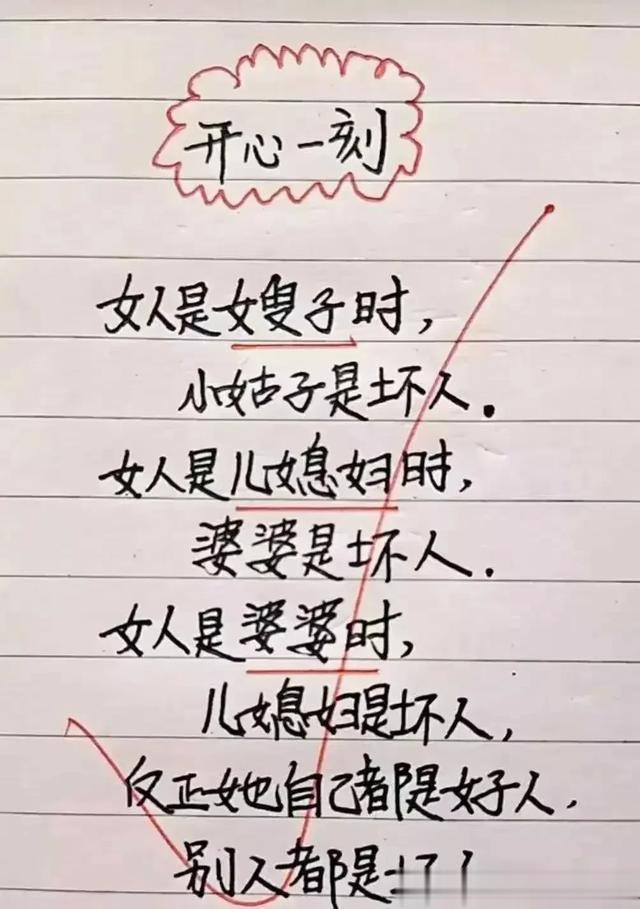 开心一刻
女人是嫂子时,
小姑子是坏人.
女人是儿媳妇时,
婆婆是坏人.
女人是婆婆时,
儿媳妇是坏人,
反正她自己都是好人.
别人都是